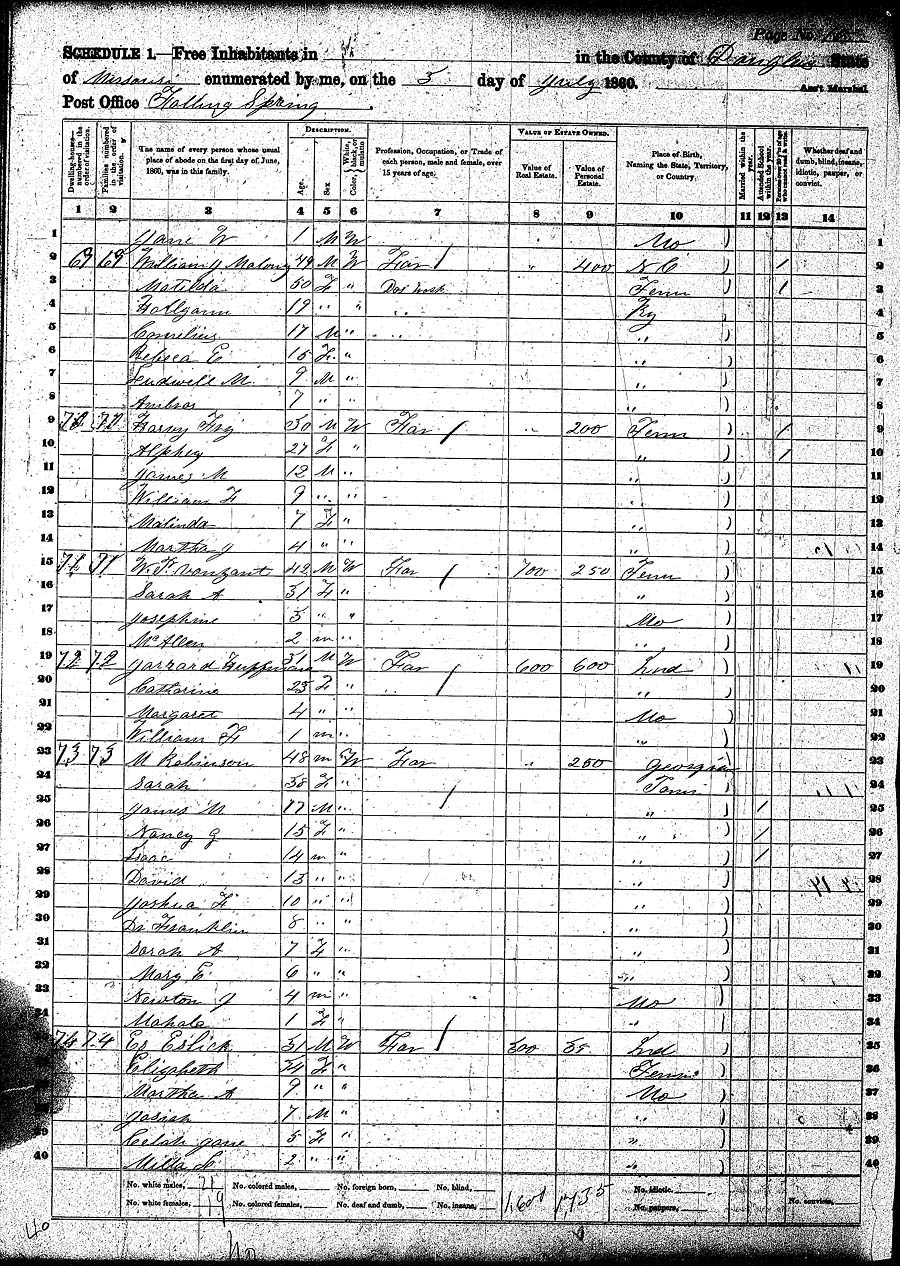 Page No.
SCHEDULE 1.—Free Inhabitants in in the County of Douglas State
of Missouri enumerated by me, on the 5 day of July 1860. Ass't Marshal
Post Office Falling Spring
Dwelling-houses—numbered in the order of visitation.
Families numbered in the order of visitation.
The name of every person whose usual place of abode on the first day of June, 1860, was in this family.
DESCRIPTION.
Age.
Sex
Color, White, black, or mulatto
Profession, Occupation, or Trade of each person, male and female, over 15 years of age.
VALUE OF ESTATE OWNED.
Value of Real Estate.
Value of Personal Estate.
Place of Birth, Naming the State, Territory, or Country.
Married within the year.
Attended School within the year.
Persons over 20 y'rs of age who cannot read & write.
Whether deaf and dumb, blind, insane, idiotic, pauper, or convict.
1 2 3 4 5 6 7 8 9 10 11 12 13 14
1 Jane W 1 M W Mo ) 1
2 69 69 William J Malony 49 M W Far / " 400 N C ) / 2
3 Matilda 50 F " Dos Work Tenn ) / 3
4 19 " " " Ky ) 4
5 Cornelius 17 M " " " ) 5
6 Rebeca E 15 F " " ) 6
7 Ludwell M 9 M " " ) 7
8 Ambros 7 " " " ) 8
9 70 70 30 M W Far / " 200 Tenn ) / 9
10 Alphey 27 F " " ) / 10
11 James M 12 M " " ) 11
12 William F 9 " " " ) 12
13 Malinda 7 F " " ) 13
14 Martha J 4 " " " ) 14
15 71 71 W. F. Vanzant 42 M W Far / 700 250 Tenn ) 15
16 Sarah A 31 F " " ) 16
17 Josephine 5 " " Mo ) 17
18 McAllen 2 m " " ) 18
19 72 72 Jarrard Huffman 31 M W Far 600 600 Ind ) 19
20 Catharine 23 F " " / " ) 20
21 Margaret 4 " " Mo ) 21
22 William H 1 m " " ) 22
23 73 73 M Robinson 48 m W Far " 250 Georgia ) 23
24 Sarah 38 F " / Tenn ) 24
25 James M 17 M " " ) / 25
26 Nancy J 15 F " " ) / 26
27 Isaac 14 m " " ) / 27
28 David 13 " " " ) 28
29 Joshua F 10 " " " ) 29
30 Franklin 8 " " " ) 30
31 Sarah A 7 F " " ) 31
32 Mary E 6 " " " ) 32
33 Newton J 4 m " Mo ) 33
34 Mahala 1 F " " ) 34
74 74 Es Eslick 31 M W Far / 300 35 Ind ) 35
Elizabeth 34 F " Tenn ) 36
Martha A 9 " " Mo ) 37
Josiah 7 M " " ) 38
39 Celah Jane 5 F " " ) 39
40 Milla 2 " " " ) 40
No. white males, 21 No. colored males, No. foreign born, No. blind, 1,600 1735 No. idiotic, No. convicts,
No. white females, 19 No. colored females, No. deaf and dumb, No. insane, No. paupers,
40
40